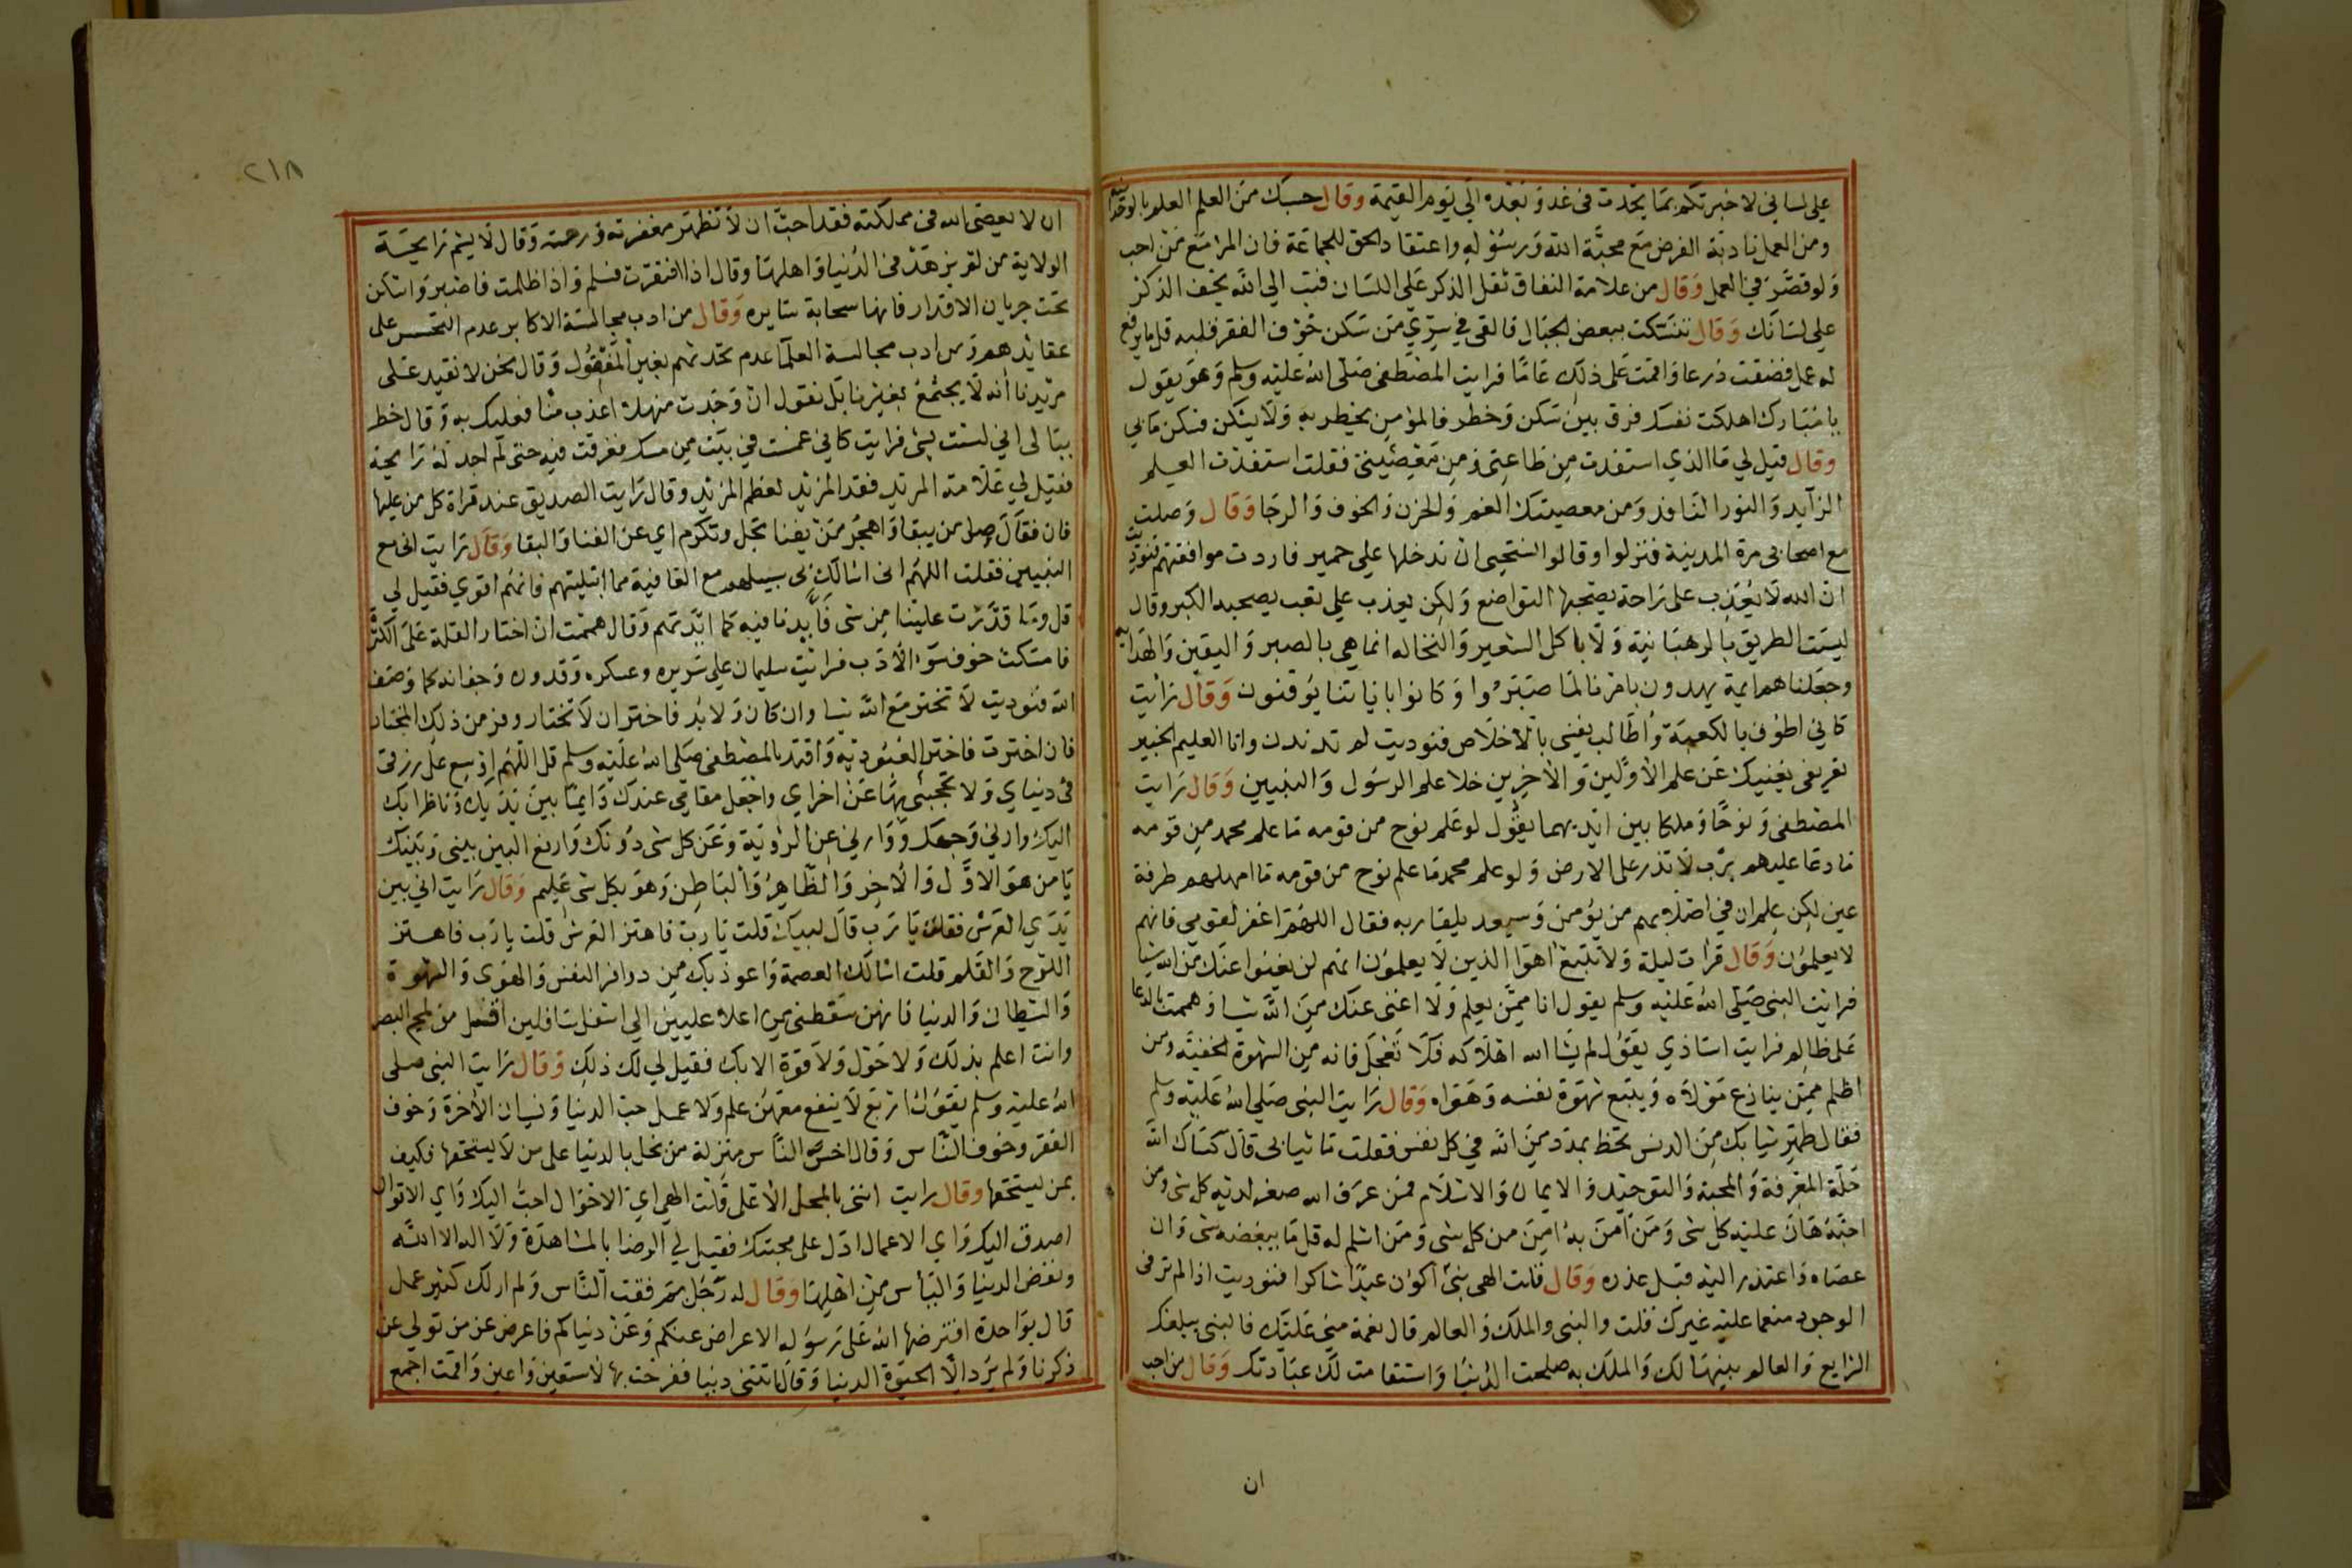 على لساني لاخبرتكم بما يحدث في غد وبعده الى يوم القيمة وقال حسبك من العلم العلم بالوحدانية
ومن العمل تادية الفرض مع محبة الله ورسوله واعتقاد الحق للجماعة فان المرا مع من احب
ولو قصر في العمل وقال من علامة النفاق ثقل الذكر على اللسان فتب الى الله يخف الذكر
على لسانك وقال تنسكت ببعض الجبال فالقى في سري من سكن خوف الفقر قلبه قل ما يرفع
له عمل فضقت ذرعا واقمت على ذلك عاما فرايت المصطفى صلى الله عليه وسلم وهو يقول
يا مبارك اهلكت نفسك فرق بين سكن وخطر فالمؤمن يخطر به ولا يسكن فسكن ما بي
وقال قيل لي ما الذي استفدت من طاعتي ومن معصيتي فقلت استفدت العلم
الزايد والنور النافذ ومن معصيتك الغم والحزن والخوف والرجا وقال وصلت
مع اصحابي مرة المدينة فنزلوا وقالوا نستحي ان ندخلها على حمير فاردت موافقتهم فنوديت
ان الله لا يعذب على راحة يصحبها التواضع ولكن يعذب على تعب يصحبه الكبر وقال
ليست الطريق بالرهبانية ولا باكل الشعير والنخاله انما هي بالصبر واليقين والهداية
وجعلناهم ايمة يهدون بامرنا لما صبروا وكانوا باياتنا يوقنون وقال رايت
كاني اطوف بالكعبة واطالب نفسي بالاخلاص فنوديت لم تدندن وانا العليم الخبير
تعريفي يغنيك عن علم الاولين والاخرين خلا علم الرسول والنبيين وقال رايت
المصطفى ونوحا وملكا بين ايديهما يقول لو علم نوح من قومه ما علم محمد من قومه
ما دعا عليهم برب لا تذر على الارض ولو علم محمد ما علم نوح من قومه ما امهلهم طرفة
عين لكن علم ان في اصلابهم من يؤمن ويسعد بلقا ربه فقال اللهم اغفر لقومي فانهم
لا يعلمون وقال قرات ليلة ولا تتبع اهوا الذين لا يعلمون انهم لن يغنوا عنك من الله شيا
فرايت النبي صلى الله عليه وسلم يقول انا ممن يعلم ولا اغنى عنك من الله شيا وهممت بالدعا
على ظالم فرايت استاذي يقول لم يشا الله اهلاكه فلا تعجل فانه من الشهوة الخفية ومن
اظلم ممن ينازع مولاه ويتبع شهوة نفسه وهواه وقال رايت النبي صلى الله عليه وسلم
فقال طهر ثيابك من الدنس تحظ بمدد من الله في كل نفس فقلت ما ثيابي قال كساك الله
حلة المعرفة والمحبة والتوحيد والايمان والاسلام فمن عرف الله صغر لديه كل شي ومن
احبه هان عليه كل شي ومن امن به امن من كل شي ومن اسلم له قل ما يبغضه شي وان
عصاه واعتذر اليه قبل عذره وقال قلت الهي متى اكون عبدا شاكرا فنوديت اذا لم تر في
الوجود منعما عليه غيرك قلت والنبي والملك والعالم قال نعمة مني عليك فالنبي يبلغك
الشرايع والعالم بينها لك والملك به صلحت الدنيا واستقامت لك عبادتك وقال من احب
ان
٢١٨
ان لا يعصى الله في مملكته فقد احب ان لا تظهر مغفرته ورحمته وقال لا يشم رايحة
الولاية من لم يزهد في الدنيا واهلها وقال اذا افتقرت فسلم واذا ظلمت فاصبر واسكن
تحت جريان الاقدار فانها سحابة سايره وقال من ادب مجالسة الاكابر عدم التجسس على
عقايدهم ومن ادب مجالسة العلما عدم تحدثهم بغير المنقول وقال نحن لا نقيد على
مريدنا انه لا يجتمع بغيرنا بل نقول ان وجدت منهلا اعذب منا فعليك به وقال خطر
ببالى اني لست بشي فرايت كاني غمست في بيت من مسك فغرقت فيه حتى لم اجد له رايحة
فقيل لي علامة المزيد فقد المزيد لعظم المزيد وقال رايت الصديق عند قراة كل من عليها
فان فقال صل من يبقا واهجر من يفنا تجل وتكرم اي عن الفنا والبقا وقال رايت اني مع
النبيين فقلت اللهم اني اسالك بي سبيلهم مع العافية مما ابتليتهم فانهم اقوى فقيل لي
قل وما قدرت علينا من شي فايدنا فيه كما ايدتهم وقال هممت ان اختار القلة على الكثر
فامسكت خوف سوء الادب فرايت سليمان على سريره وعسكره وقدوره وجفانه كما وصف
الله فنوديت لا تختر مع الله شيا وان كان ولابد فاختر ان لا تختار وفر من ذلك المختار
فان اخترت فاختر العبودية واقتد بالمصطفى صلى الله عليه وسلم قل اللهم اوسع على رزقي
في دنياي ولا تحجبني بها عن اخراي واجعل مقامي عندك دايما بين يديك وناظرا بك
اليك وارني وجهك ووارني عن الروية وعن كل شي دونك وارفع البين بيني وبينك
يا من هو الاول والاخر والظاهر والباطن وهو بكل شي عليم وقال رايت اني بين
يدي العرش فقلت يا رب قال لبيك قلت يا رب فاهتز العرش قلت يا رب فاهتز
اللوح والقلم قلت اسالك العصمة واعوذ بك من النفس والهوى والشهوة
والشيطان والدنيا فانهن سقطني من اعلا عليين الى اسفل سافلين من لمح البصر
وانت اعلم بذلك ولا حول ولا قوة الا بك فقيل لي لك ذلك وقال رايت النبي صلى
الله عليه وسلم يقول اربع لا ينفع معهن علم ولا عمل حب الدنيا ونسيان الاخرة وخوف
الفقر وخوف الناس وقال اخس الناس منزلة من بخل بالدنيا على من لا يستحقها فكيف
بمن يستحقها وقال رايت انني بالمحل الاعلى قلت الهي اي الاحوال احب اليك واي الاقوال
اصدق اليك واي الاعمال ادل على محبتك فقيل لي الرضا بالمشاهدة ولا اله الا الله
وبغض الدنيا والياس من اهلها وقال له رجل بم فقت الناس ولم ار لك كثير عمل
قال بواحدة افترضها الله على رسوله الاعراض عنكم وعن دنياكم فاعرض عن من تولى عن
ذكرنا ولم يرد الا الحيوة الدنيا وقال اتتني دنيا ففرحت بها لاستعين واعين واقمت اجمع